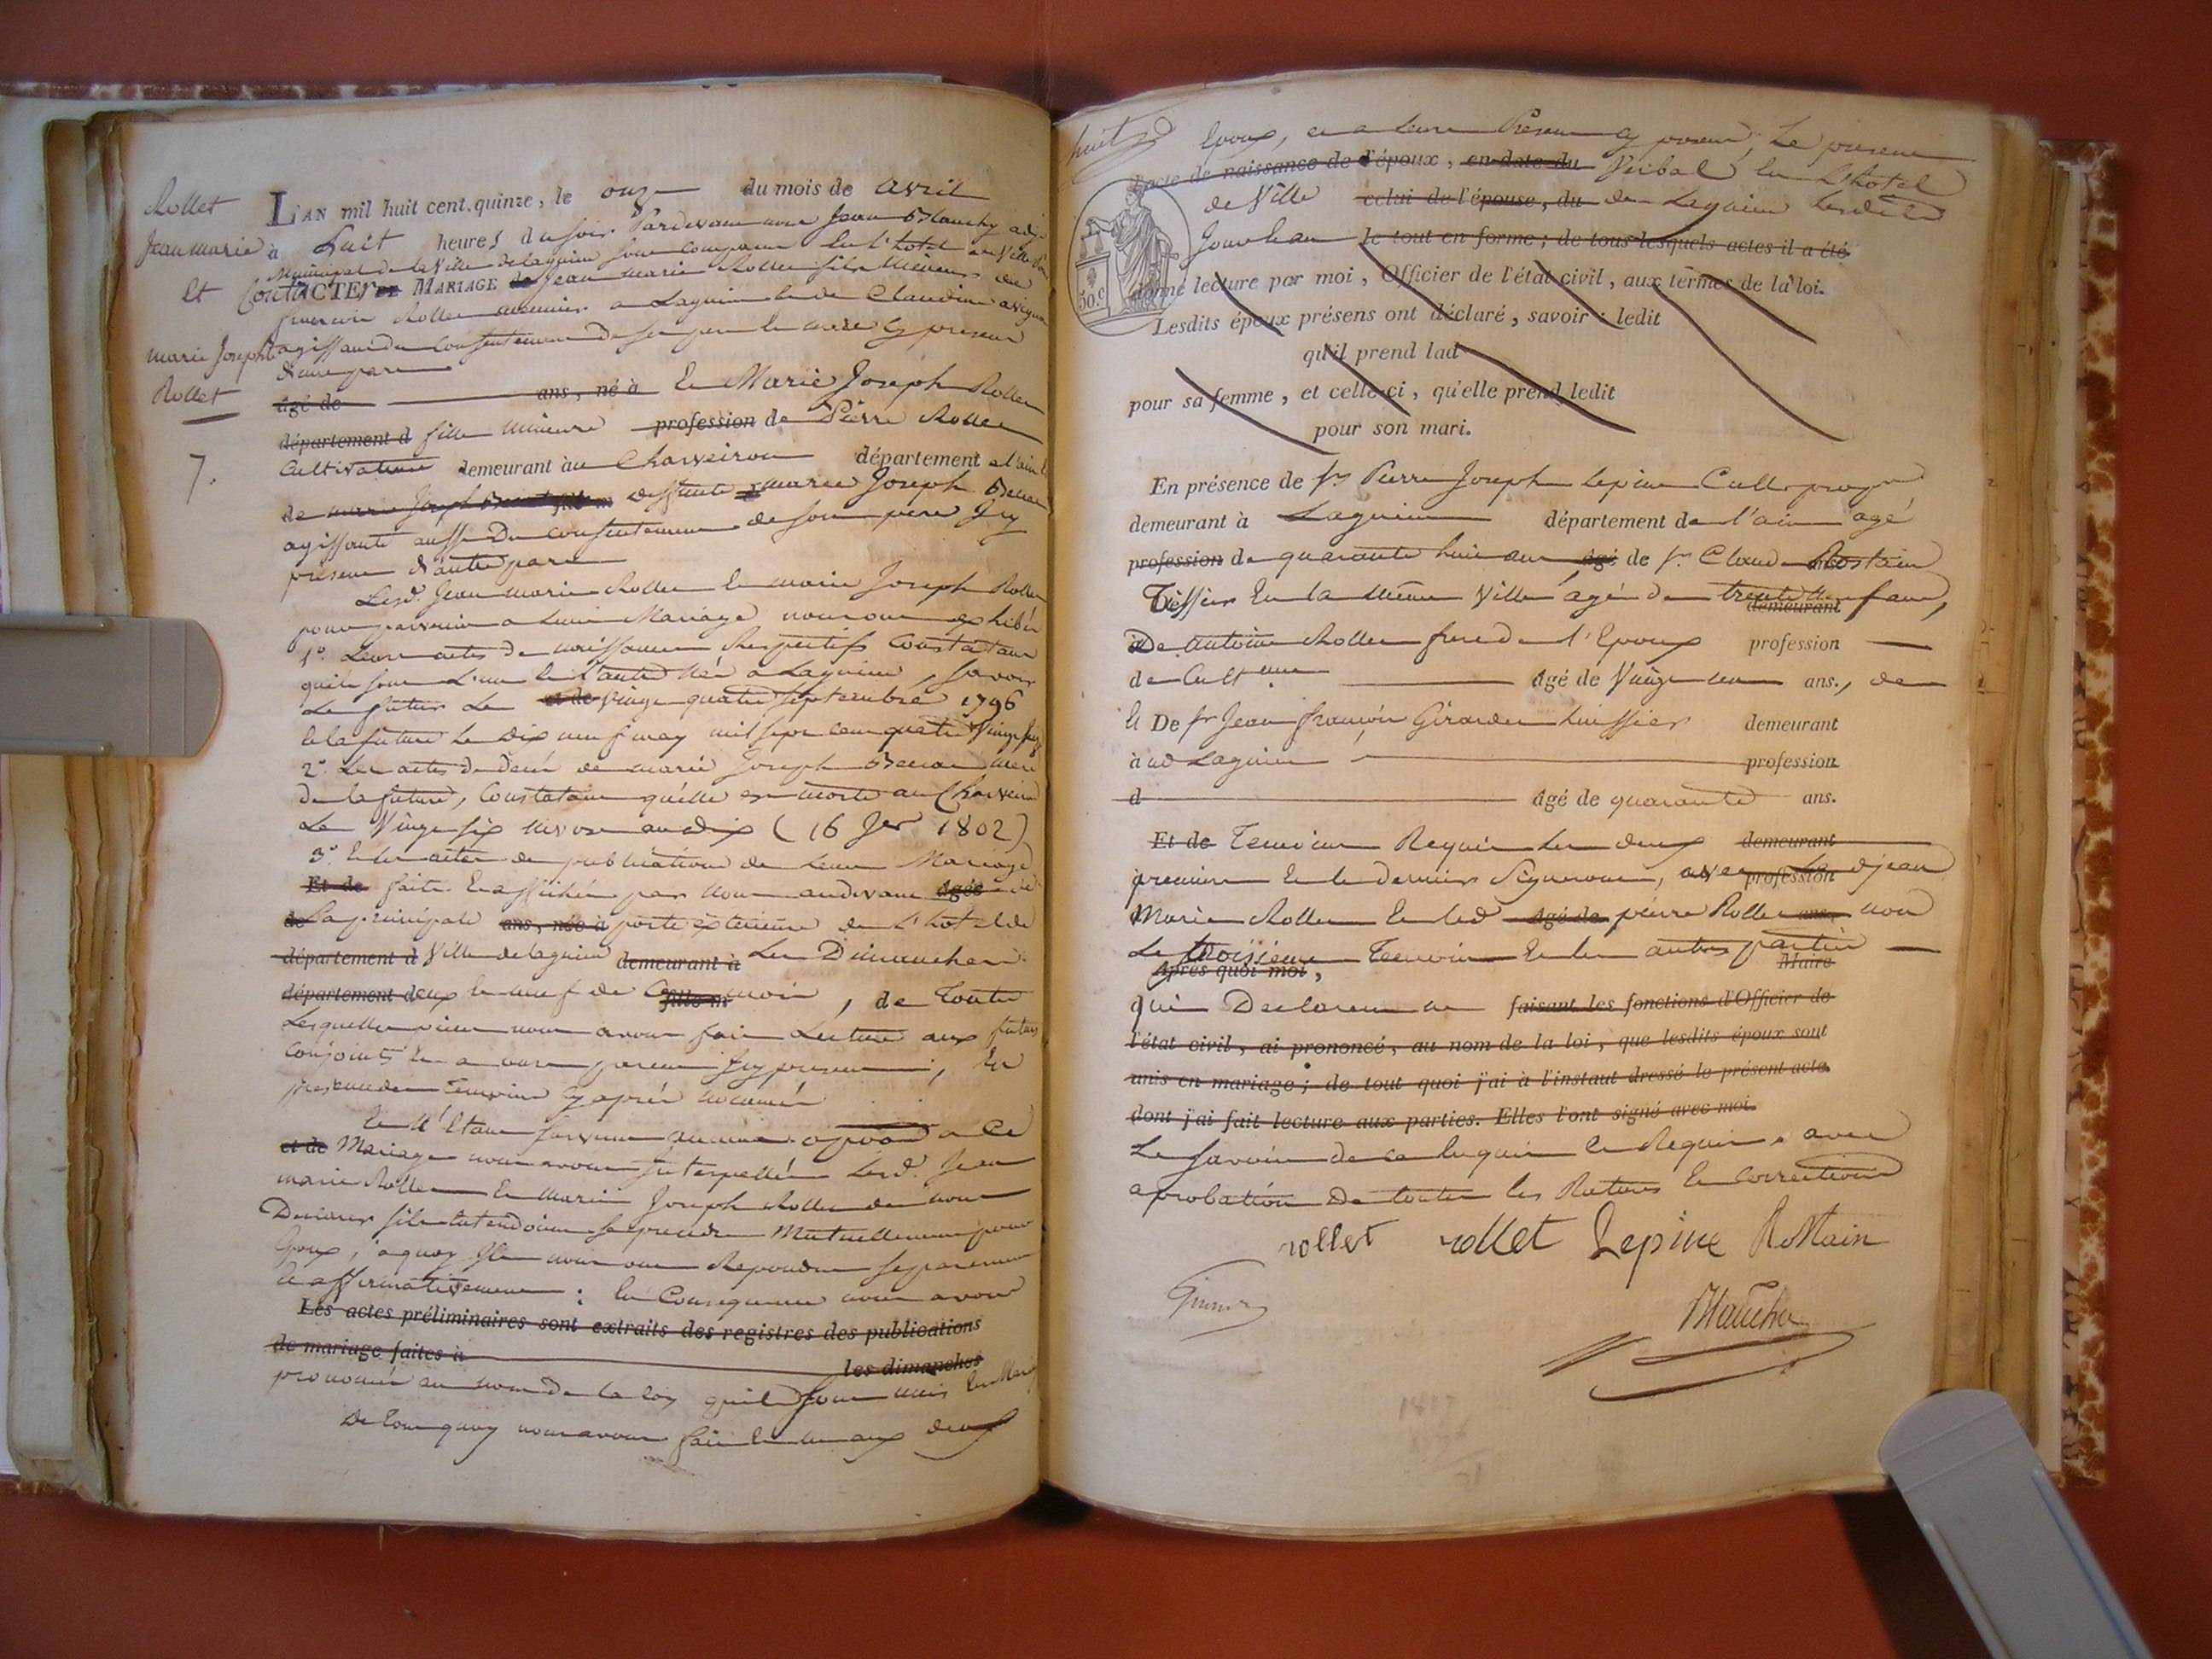 Rollet
Jean marie
Et
marie Josephte
Rollet
7.
L'AN mil huit cent quinze, le onze du mois de avril
à huit heures du soir Pardevant nous Jean Blanchy adj.
Municipal de la Ville de lagnieu sont comparu En l'hotel de Ville
Contracter MARIAGE Jean marie Rollet fils Mineur de
Rollet a Lagnieu et de Claudine
agissant du consentement de son pere et mere cy present
d'une part
agé de ans, né à Et Marie Joseph Rollet
département d fille Mineure profession de Pierre Rollet
Cultivateur demeurant àu Charveiron département de l'ain
de marie Joseph deffunte marie Joseph
agissante aussi Du consentement de son père Icy
présent d'autre part
Lesd. Jean marie Rollet Et marie Joseph Rollet
pour parvenir a Leur Mariage nous ont exhibés
1°. Leurs actes de naissance Respectifs Constatant
qu'ils sont L'un Et l'autre Nés a Lagnieu, savoir
Le futur Le vingt quatre septembre 1796
Et la future Le dix neuf may mil sept cent quatre Vingt
2°. Les actes de decés de marie Joseph mere
De la future, Constatant qu'elle est morte au Charveiron
Le Vingt six nivose an dix (16 Jer 1802)
3°. Et les actes de publications de Leur Mariage
Et de faites Et affichées par nous audevant agée
de La principale ans, née à porte exterieure de L'hotel de
département d Ville de lagnieu demeurant à Les Dimanches
département deux et neuf de Ce mois, de Toutes
Lesquelles pieces nous avons fait Lecture aux futurs
conjoints Et a leurs parens Icy presents, En
presence des temoins cy après nommés
Et N'Etant survenu aucune opposon a Ce
et de Mariage nous avons Interpellés Lesd. Jean
marie Rollet Et Marie Joseph Rollet de nous
Declarer s'ils entendoient se prendre Mutuellement pour
Epoux, a quoy Ils nous ont Repondu séparement
Et affirmativement: En Conséquence nous avons
Les actes préliminaires sont extraits des registres des publications
de mariage faites à les dimanches
prononcé au nom de la loy qu'ils sont unis En Mariage
De tout quoy nous avons fait Et lu aux deux
huit
Epoux, et a leurs Parens cy présens, Le present
L'acte de naissance de l'époux, en date du Verbal En L'hotel
de Ville celui de l'épouse, du de Lagnieu Lesd.
Jour et an le tout en forme; de tous lesquels actes il a été
50.c
donné lecture par moi, Officier de l'état civil, aux termes de la loi.
Lesdits époux présens ont déclaré, savoir: ledit
qu'il prend lad
pour sa femme, et celle-ci, qu'elle prend ledit
pour son mari.
En présence de Sr Pierre Joseph Lepine Cult. propre
demeurant à Lagnieu département de l'ain agé
profession de quarante huit ans agé de Sr. Claude Rostain
Tissier En la même Ville agé de trente neuf ans,
demeurant
à De antoine Rollet frere de l'Epoux profession
de Cultr agé de Vingt un ans., de
Et De Sr Jean françois Girardet huissier demeurant
à ud Lagnieu profession
d agé de quarante ans.
Et de Temoins Requis Les deux demeurant
premiers Et le dernier Signeront, avec Led jean profession
Marie Rollet Et led agé de pierre Rollet ans non
Le troisieme Temoin Et les autres parties
Après quoi moi, Maire
qui Declarent ne faisant les fonctions d'Officier de
l'état civil, ai prononcé, au nom de la loi, que lesdits époux sont
unis en mariage; de tout quoi j'ai à l'instant dressé le présent acte
dont j'ai fait lecture aux parties. Elles l'ont signé avec moi.
Le savoir de ce Enquis Et Requis, avec
aprobation De toutes les Ratures Et Corrections
rollet rollet Lepine Rostain
Blanchy